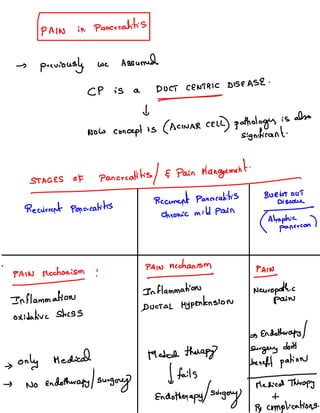 PAIN in Pancreatitis
→ previously we Assumed
CP is a DUCT CENTRIC DISEASE.
↓
Now concept is (ACINAR CELL) pathology is also
significant.
STAGES OF Pancreatitis / & Pain Management.
Recurrent Pancreatitis
Recurrent Pancreatitis
Chronic mild Pain
BURNT OUT
Disease
(Atrophic
pancreas)
PAIN Mechanism :
Inflammation
oxidative stress
→ only Medical
→ No Endotherapy / Surgery
PAIN Mechanism
Inflammation
DUCTAL Hypertension
Medical therapy
↓ fails
Endotherapy / Surgery
PAIN
Neuropathic
pain
Endotherapy /
Surgery dont
benefit patient
Medical Therapy
+
Rx complications.